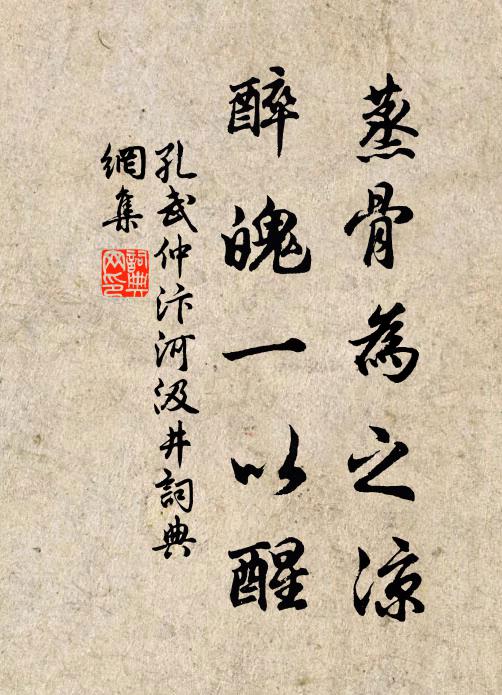 蒸骨為之涼
醉魄一以醒
孔武仲汴河汲井詞典
網集
詞典网印